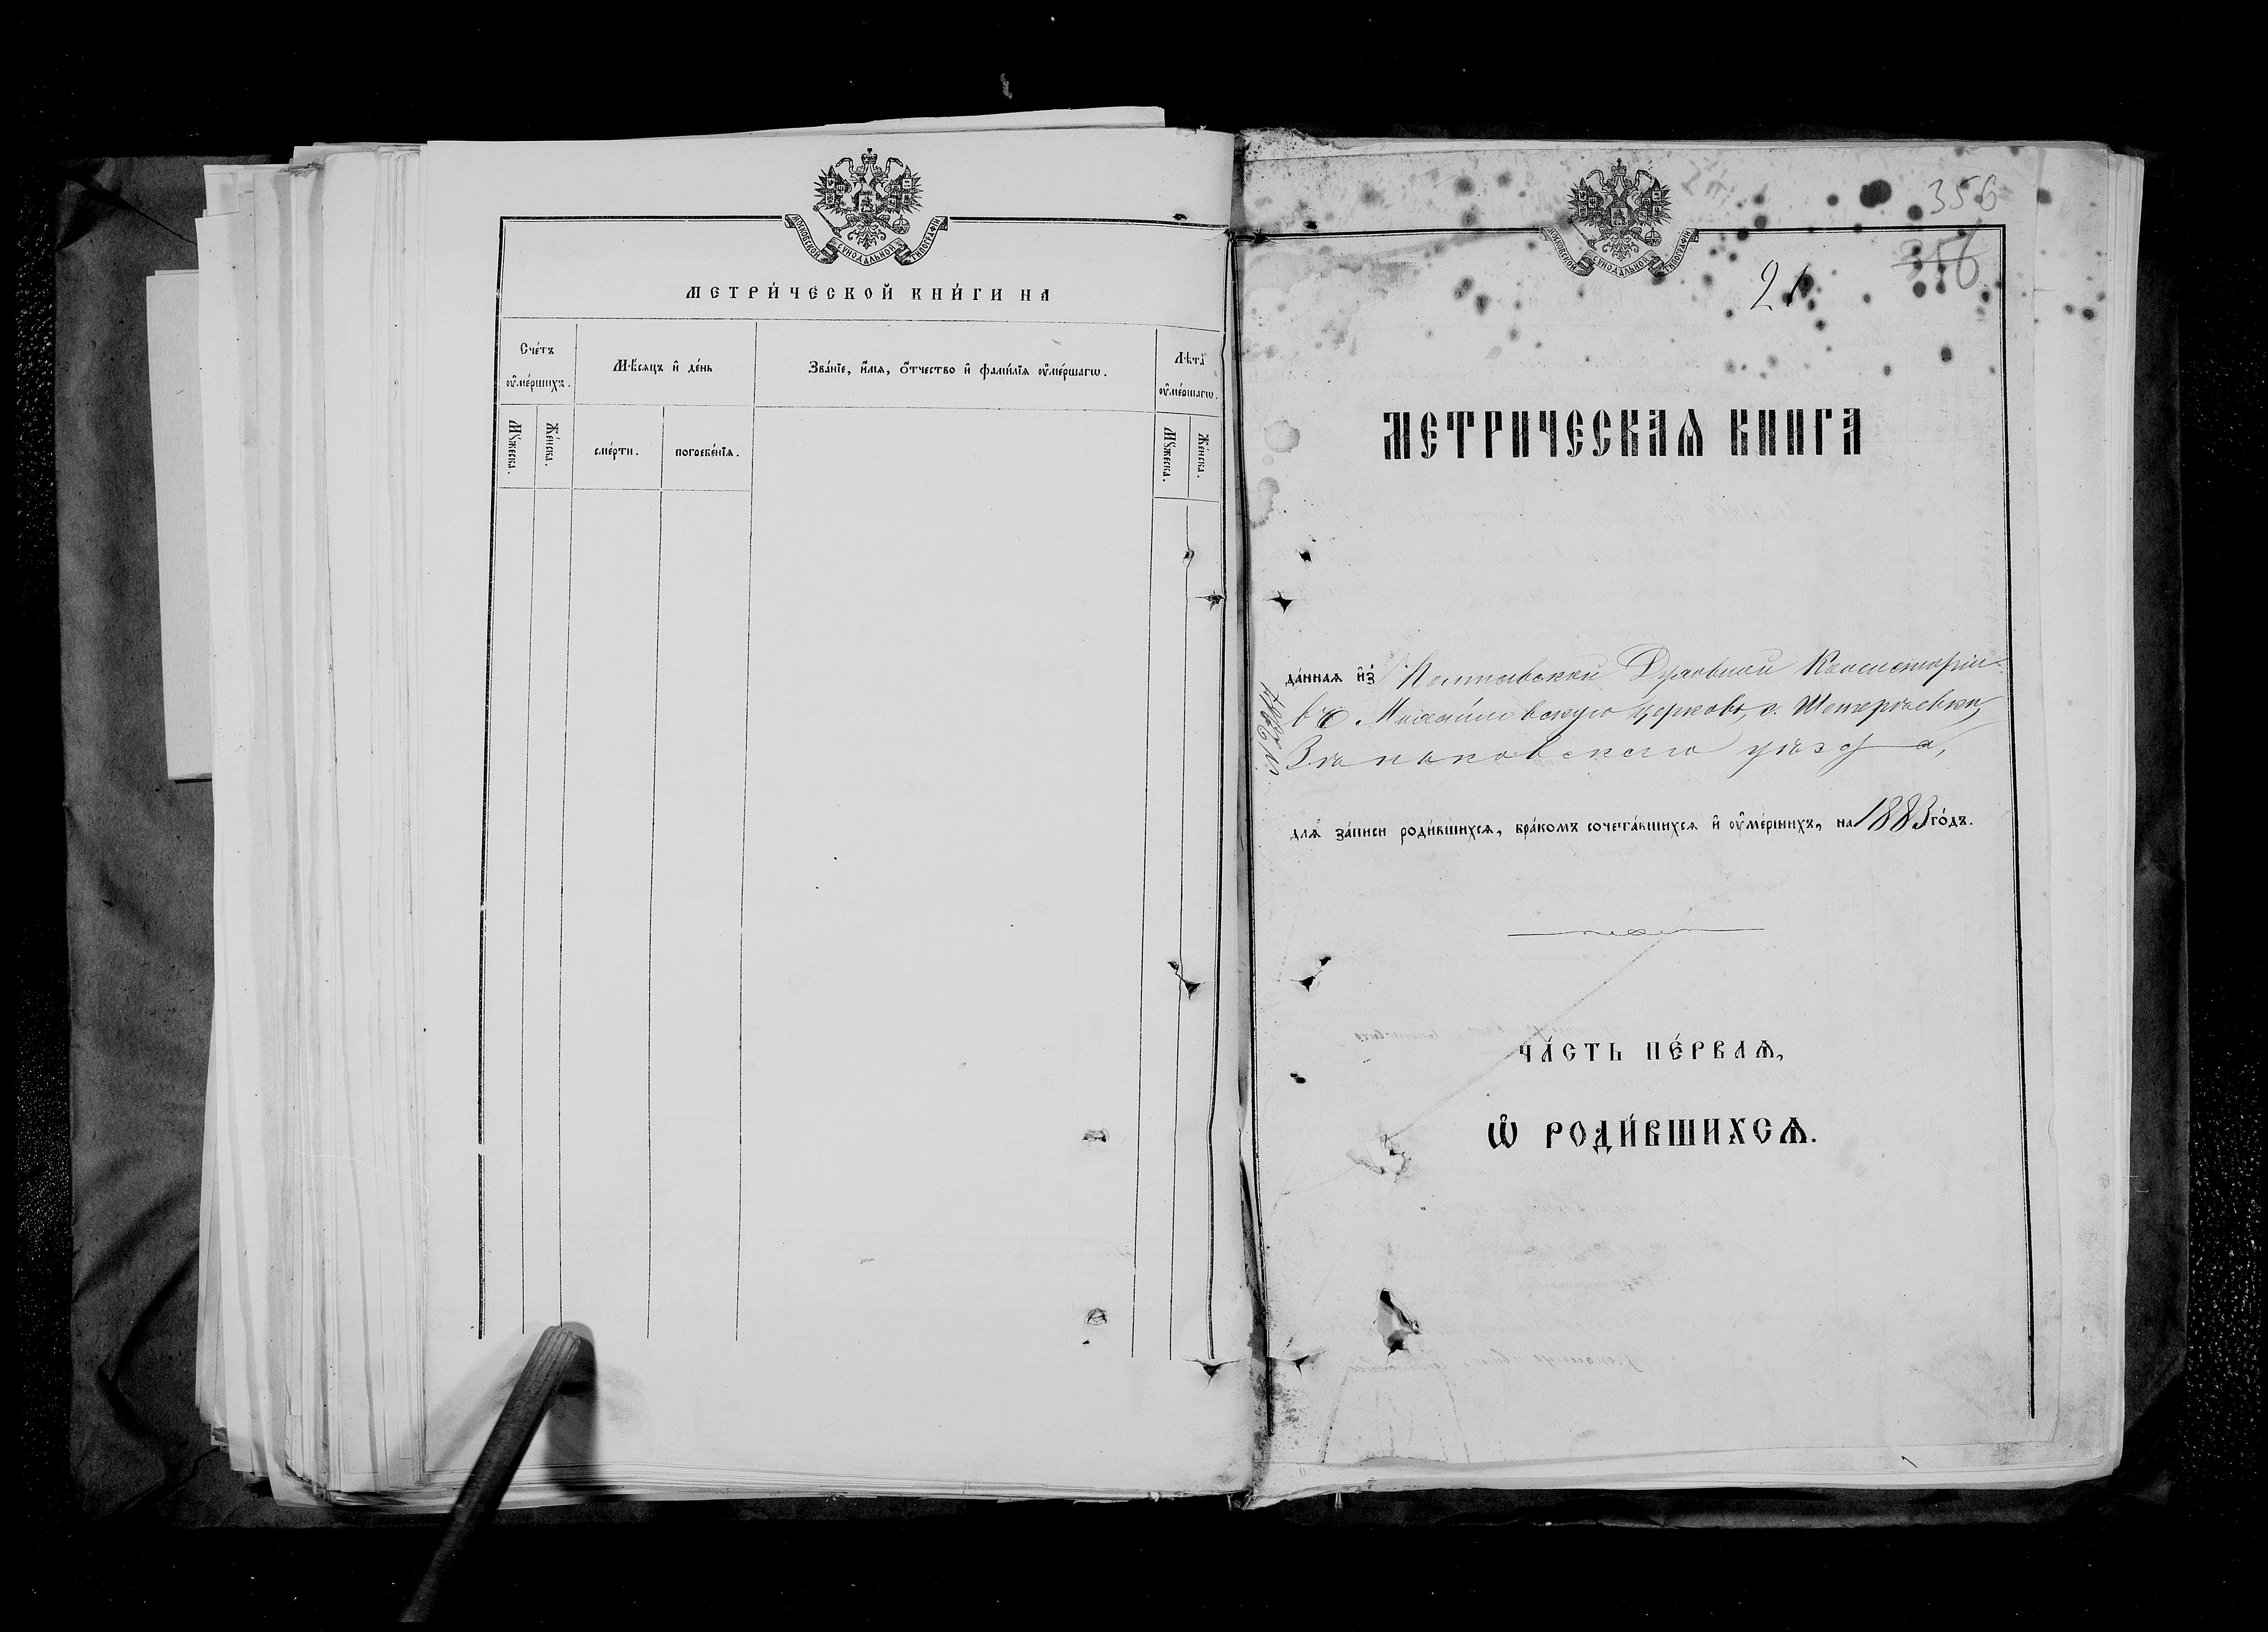 МОСКОВСКОЙ СУНОДАЛЬНОЙ ТИПОГРАФІИ
МЕТРИ́ЧЕСКОЙ КНИ́ГИ НА
Сче́тъ ᲂу҆ме́ршихъ.
Мѣ́сяцъ и҆ де́нь
Зва́нїе, и҆́мѧ, ѻ҆́тчество и҆ фами́лїѧ ᲂу҆ме́ршагѡ.
Лѣ́та ᲂу҆ме́ршагѡ.
Мꙋ́жеска.
Же́нска.
сме́рти.
погребе́нїѧ.
Мꙋ́жеска.
Же́нска.
356
МОСКОВСКОЙ СУНОДАЛЬНОЙ ТИПОГРАФІИ
356
21
МЕТРИЧЕСКАѦ КНИГА
да́ннаѧ и҆з̾ Полтавской Духовной Консисторіи
въ С. Михайловскую церковь, с.
Зѣньковскаго уѣзда,
длѧ̀ за́писи роди́вшихсѧ, бра́комъ сочета́вшихсѧ и҆ ᲂу҆ме́ршихъ, на 1883 го́дъ.
ЧА́СТЬ ПЕ́РВАѦ,
Ѡ҆ РОДИ́ВШИХСѦ.